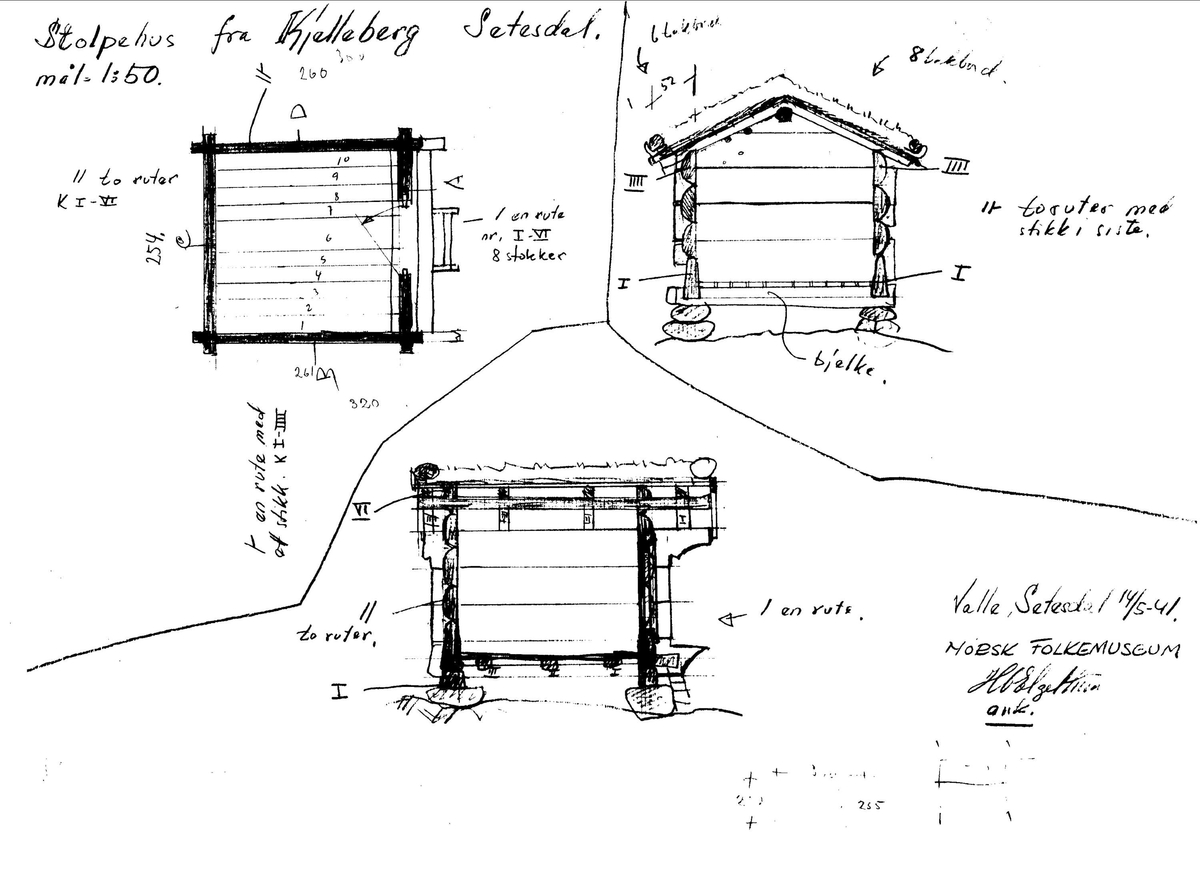 Stolpehus fra Kjelleberg Setesdal.
mål- 1:50.
260
300
// to ruter
K I-VI
254.
10
9
8
7
6
5
4
3
2
1
A
1 en rute
nr. I-VI
8 stokker
261
320
en rute med
stikk. K I-IIII
52
8
IIII
IIII
I
I
toruter med
stikk i siste.
bjelke.
VI
//
to ruter.
I
1 en rute.
Valle, Setesdal 14/5-41.
NORSK FOLKEMUSEUM
ark.
255